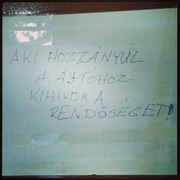 AKI HOZZÁNYUL
A AJTOHOZ
KIHIVOM A
RENDŐSÉGET!